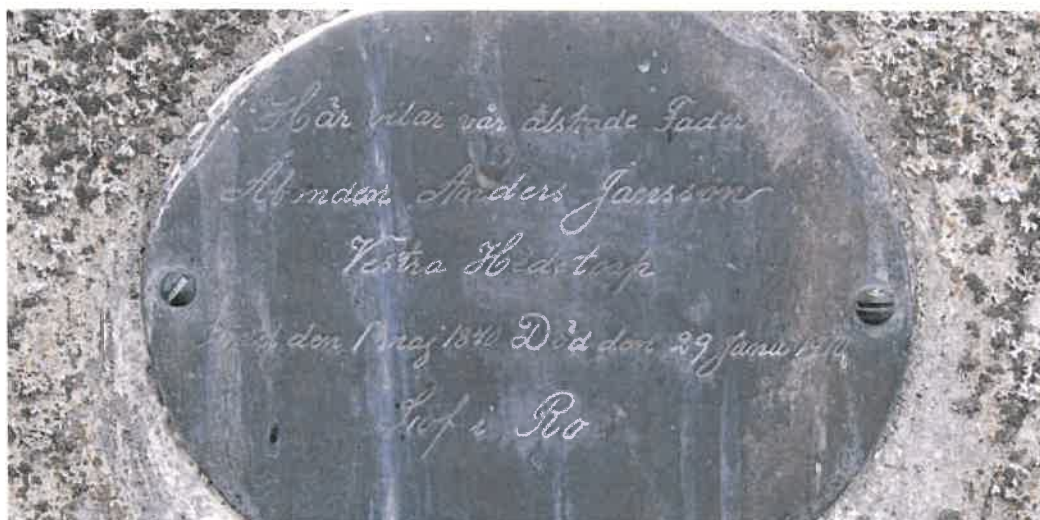 Här vilar vår älskade Fader
Åbonden Anders Jansson
Vestra Hedetorp
Född den 1 maj 1840 Död den 29 Janu
Sof i Ro